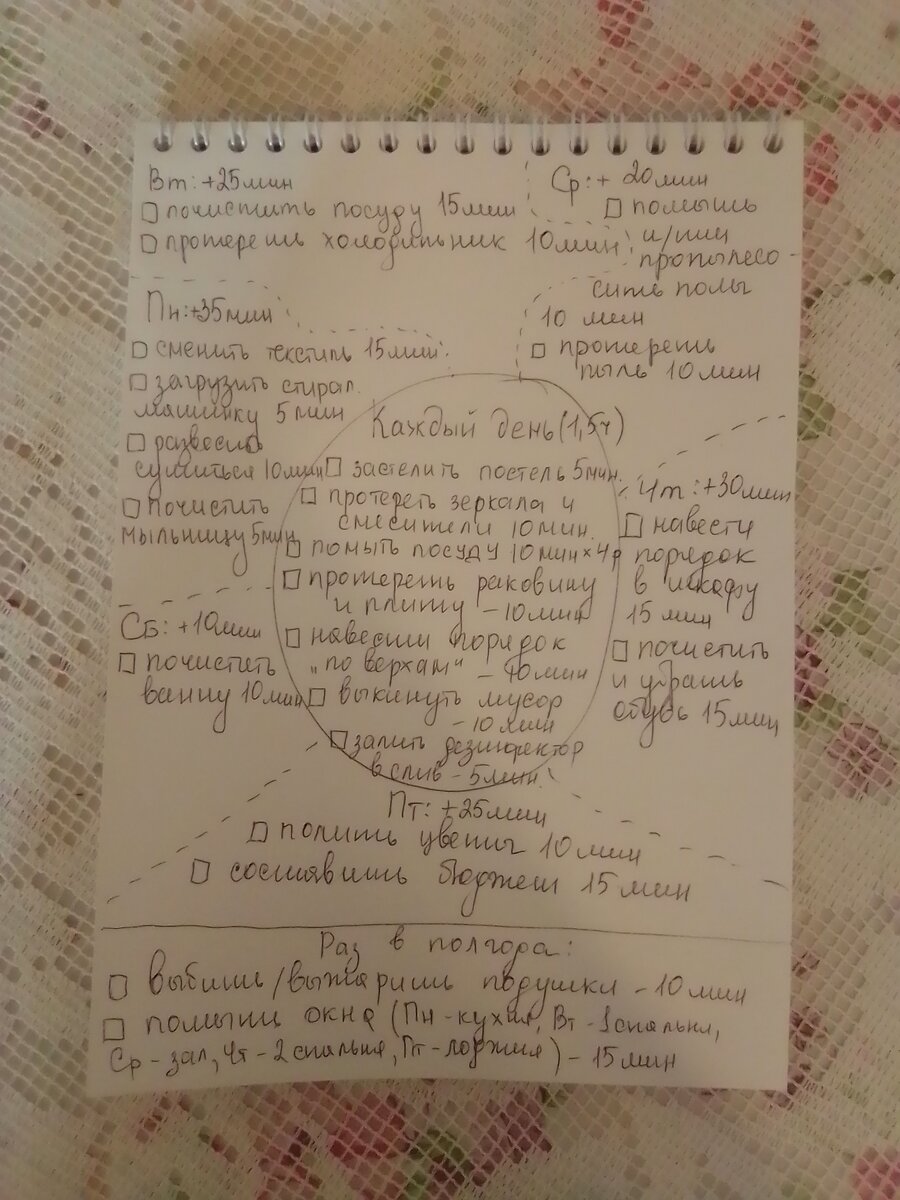 Вт: +25мин
□ почистить посуду 15мин
□ протереть холодильник 10мин
Ср: + 20мин
□ помыть
и/или
пропылесо-
сить полы
10 мин
□ протереть
пыль 10мин
Пн: +35мин
□ сменить текстиль 15мин
□ загрузить стирал.
машинку 5мин
□ развесить
сушиться 10мин
□ почистить
мыльницу 5мин
Каждый день (1,5ч)
□ застелить постель 5мин.
□ протереть зеркала и
смесители 10мин.
□ помыть посуду 10мин×4р
□ протереть раковину
и плиту - 10мин
□ навести порядок
"по верхам" - 10мин
□ выкинуть мусор
- 10мин
□ залить дезинфектор
в слив - 5мин.
Чт: +30мин
□ навести
порядок
в шкафу
15 мин
□ почистить
и убрать
обувь 15мин
Сб: +10мин
□ почистить
ванну 10мин
Пт: +25мин
□ полить цветы 10мин
□ составить бюджет 15мин
Раз в полгода:
□ выбить/выжарить подушки - 10мин
□ помыть окна (Пн-кухня, Вт-1спальня,
Ср-зал, Чт-2спальня, Пт-лоджия) - 15мин